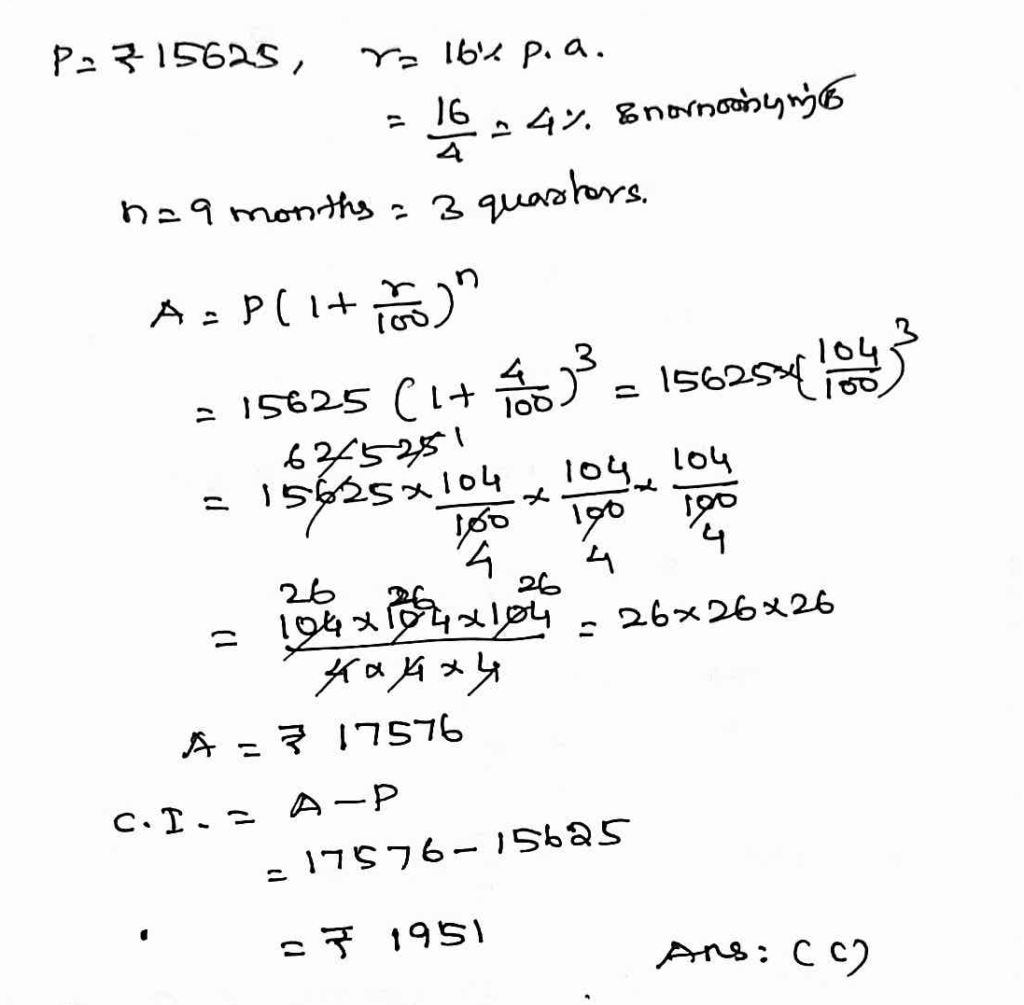 P = ₹ 15625, r = 16% p.a.
= 16/4 = 4% காலாண்டிற்கு
n = 9 months = 3 quarters.
A = P(1 + r/100)^n
= 15625 (1 + 4/100)^3 = 15625 × (104/100)^3
625 25 1
= 15625 × 104/100 × 104/100 × 104/100
4 4 4
26 26 26
= 104 × 104 × 104 / 4 × 4 × 4 = 26 × 26 × 26
A = ₹ 17576
C.I. = A - P
= 17576 - 15625
= ₹ 1951
Ans: (C)